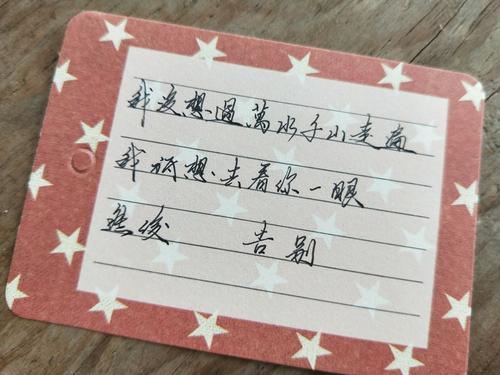 我没想過萬水千山走遍
我祇想去看你一眼
然後 告别